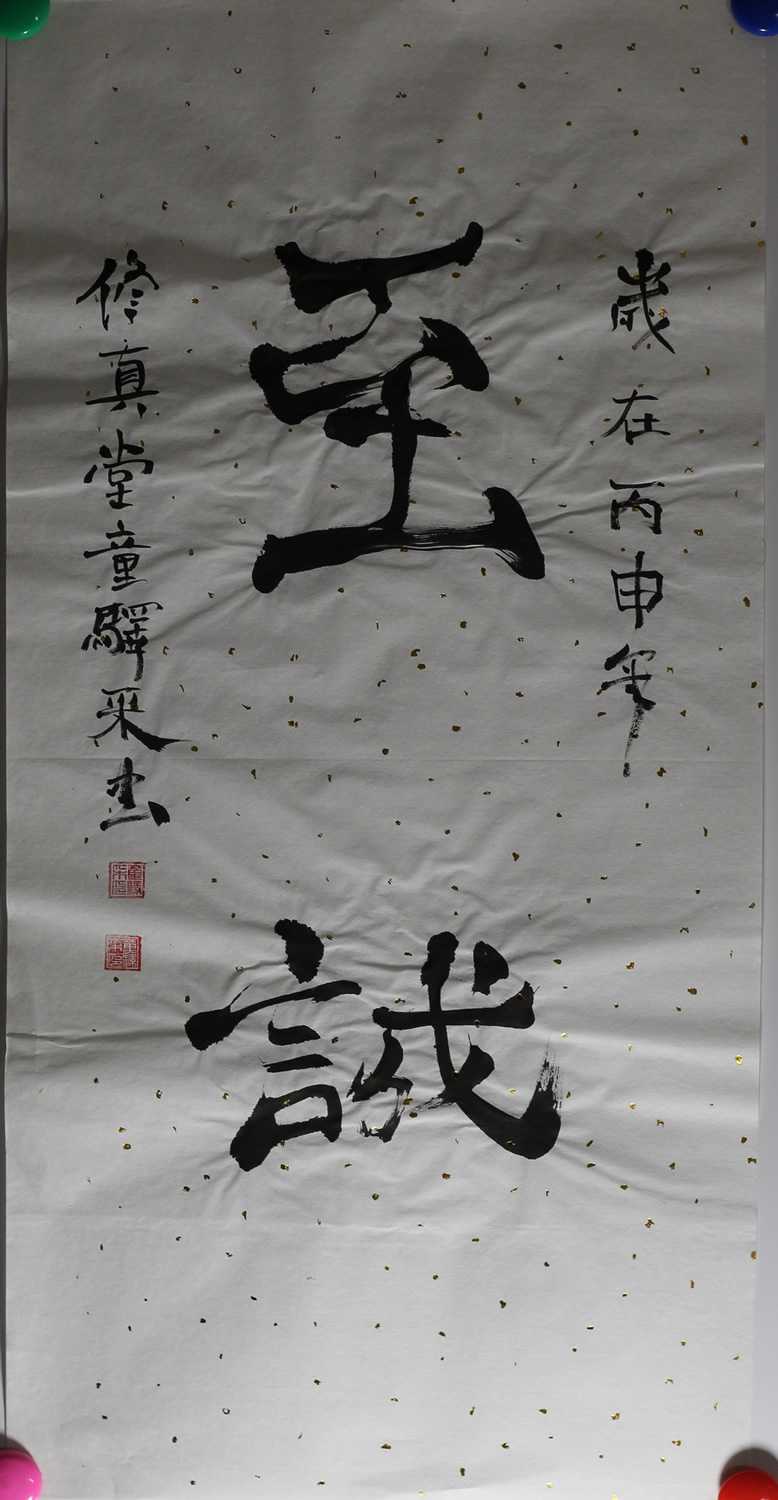 歲在丙申年
至誠
修真堂童驛采書